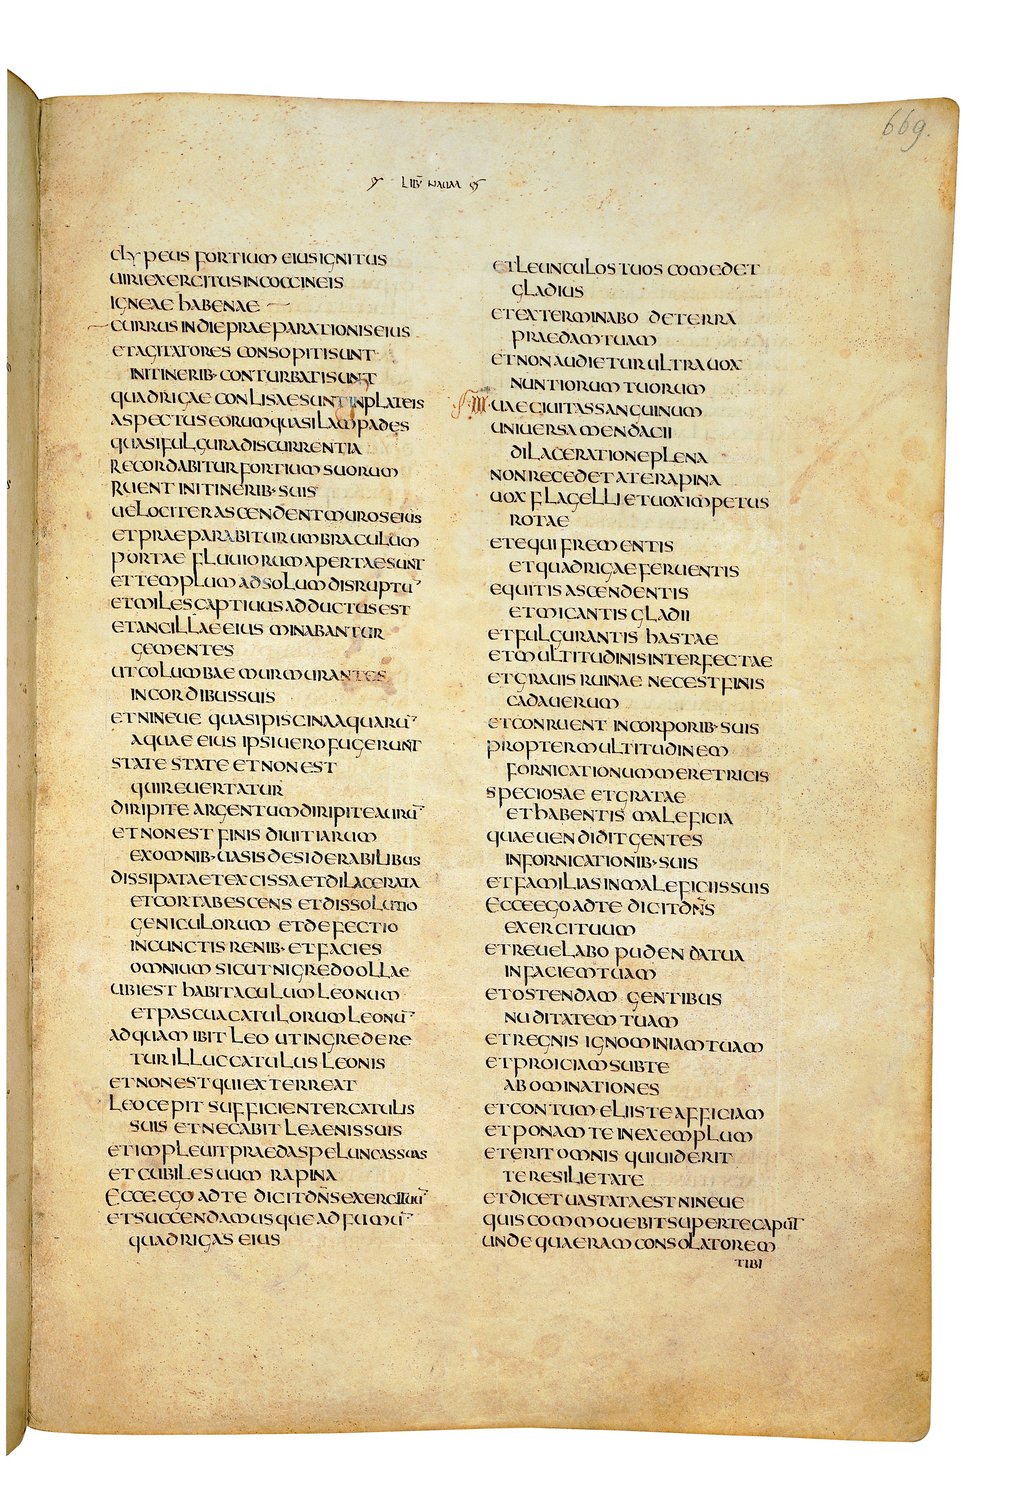 669.
LIB̄ NAUM
CLYPEUS FORTIUM EIUS IGNITUS
UIRI EXERCITUS IN COCCINEIS
IGNEAE HABENAE
CURRUS IN DIE PRAEPARATIONIS EIUS
ET AGITATORES CONSOPITI SUNT
IN ITINERIB· CONTURBATI SUNT
QUADRIGAE CONLISAE SUNT IN PLATEIS
ASPECTUS EORUM QUASI LAMPADES
QUASI FULGURA DISCURRENTIA
RECORDABITUR FORTIUM SUORUM
RUENT IN ITINERIB· SUIS
UELOCITER ASCENDENT MUROS EIUS
ET PRAEPARABITUR UMBRACULUM
PORTAE FLUUIORUM APERTAE SUNT
ET TEMPLUM AD SOLUM DISRUPTŪ
ET MILES CAPTIUUS ADDUCTUS EST
ET ANCILLAE EIUS MINABANTUR
GEMENTES
UT COLUMBAE MURMURANTES
IN CORDIBUS SUIS
ET NINEUE QUASI PISCINA AQUARŪ
AQUAE EIUS IPSI UERO FUGERUNT
STATE STATE ET NON EST
QUI REUERTATUR
DIRIPITE ARGENTUM DIRIPITE AURŪ
ET NON EST FINIS DIUITIARUM
EX OMNIB· UASIS DESIDERABILIBUS
DISSIPATA ET EXCISSA ET DILACERATA
ET COR TABESCENS ET DISSOLUTIO
GENICULORUM ET DEFECTIO
IN CUNCTIS RENIB· ET FACIES
OMNIUM SICUT NIGREDO OLLAE
UBI EST HABITACULUM LEONUM
ET PASCUA CATULORUM LEONŪ
AD QUAM IBIT LEO UT INGREDERE
TUR ILLUC CATULUS LEONIS
ET NON EST QUI EXTERREAT
LEO CEPIT SUFFICIENTER CATULIS
SUIS ET NECABIT LEAENIS SUIS
ET IMPLEUIT PRAEDA SPELUNCAS SUAS
ET CUBILE SUUM RAPINA
ECCE EGO AD TE DICIT DN̄S EXERCITUŪ
ET SUCCENDAM USQUE AD FUMŪ
QUADRIGAS EIUS
ET LEUNCULOS TUOS COMEDET
GLADIUS
ET EXTERMINABO DE TERRA
PRAEDAM TUAM
ET NON AUDIETUR ULTRA UOX
NUNTIORUM TUORUM
III· UAE CIUITAS SANGUINUM
UNIUERSA MENDACII
DILACERATIONE PLENA
NON RECEDET A TE RAPINA
UOX FLAGELLI ET UOX IMPETUS
ROTAE
ET EQUI FREMENTIS
ET QUADRIGAE FERUENTIS
EQUITIS ASCENDENTIS
ET MICANTIS GLADII
ET FULGURANTIS HASTAE
ET MULTITUDINIS INTERFECTAE
ET GRAUIS RUINAE NEC EST FINIS
CADAUERUM
ET CONRUENT IN CORPORIB· SUIS
PROPTER MULTITUDINEM
FORNICATIONUM MERETRICIS
SPECIOSAE ET GRATAE
ET HABENTIS MALEFICIA
QUAE UENDIDIT GENTES
IN FORNICATIONIB· SUIS
ET FAMILIAS IN MALEFICIIS SUIS
ECCE EGO AD TE DICIT DN̄S
EXERCITUUM
ET REUELABO PUDENDA TUA
IN FACIEM TUAM
ET OSTENDAM GENTIBUS
NUDITATEM TUAM
ET REGNIS IGNOMINIAM TUAM
ET PROICIAM SUB TE
ABOMINATIONES
ET CONTUMELIIS TE AFFICIAM
ET PONAM TE IN EXEMPLUM
ET ERIT OMNIS QUI UIDERIT
TE RESILIET A TE
ET DICET UASTATA EST NINEUE
QUIS COMMOUEBIT SUPER TE CAPUT
UNDE QUAERAM CONSOLATOREM
TIBI